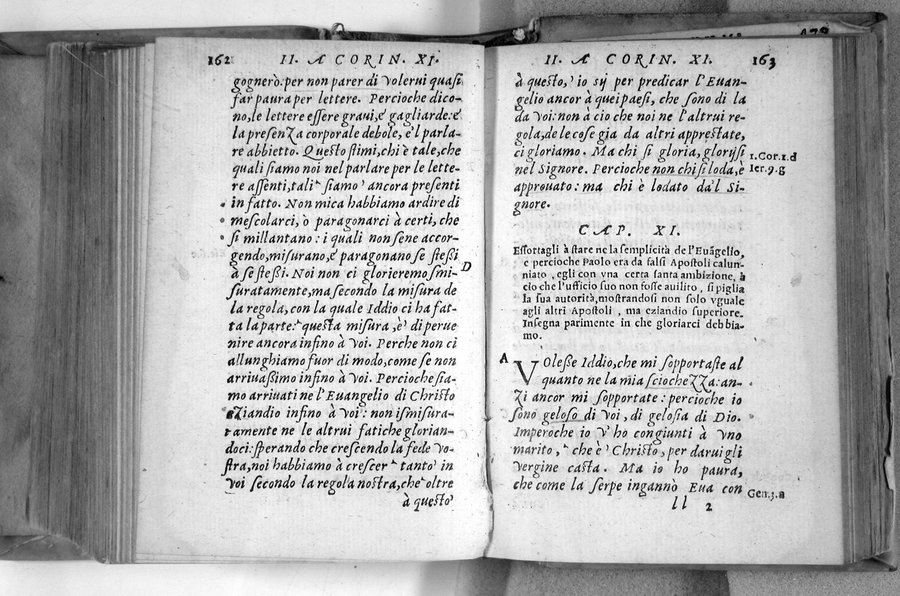 162 II. A CORIN. XI.
gognerò: per non parer di volerui quasi
far paura per lettere. Percioche dico-
no, le lettere essere graui, e' gagliarde: e
la presenza corporale debole, e'l parla-
re abbietto. Questo stimi, chi è tale, che
quali siamo noi nel parlare per le lette-
re assenti, tali siamo ancora presenti
in fatto. Non mica habbiamo ardire di
mescolarci, ò paragonarci à certi, che
si millantano: i quali non sene accor-
gendo, misurano, e paragonano se stessi
à se stessi. Noi non ci glorieremo smi-
D
suratamente, ma secondo la misura de
la regola, con la quale Iddio ci ha fat-
ta la parte: questa misura, è di perue
nire ancora infino à voi. Perche non ci
allunghiamo fuor di modo, come se non
arriuassimo infino à voi. Percioche sia-
mo arriuati ne l'Euangelio di Christo
eziandio infino à voi: non ismisura-
tamente ne le altrui fatiche glorian-
doci: sperando che crescendo la fede vo-
stra, noi habbiamo à crescer tanto in
voi secondo la regola nostra, che oltre
à questo
II. A CORIN. XI. 163
à questo, io sij per predicar l'Euan-
gelio ancor à quei paesi, che sono di la
da voi: non à cio che noi ne l'altrui re-
gola, de le cose gia da altri apprestate,
ci gloriamo. Ma chi si gloria, glorijsi
1.Cor.1.d
nel Signore. Percioche non chi si loda, è
Ier.9.g
approuato: ma chi è lodato da'l Si-
gnore.
CAP. XI.
Essortagli à stare ne la semplicità de l'Euãgelio,
e percioche Paolo era da falsi Apostoli calun-
niato, egli con vna certa santa ambizione, à
cio che l'ufficio suo non fosse auilito, si piglia
la sua autorità, mostrandosi non solo vguale
agli altri Apostoli, ma eziandio superiore.
Insegna parimente in che gloriarci debbia-
mo.
A
Volesse Iddio, che mi sopportaste al
quanto ne la mia sciochezza: an-
zi ancor mi sopportate: percioche io
sono geloso di voi, di gelosia di Dio.
Imperoche io v'ho congiunti à vno
marito, che è Christo, per darui gli
vergine casta. Ma io ho paura,
che come la serpe ingannò Eua con
Gen.3.a
ll 2